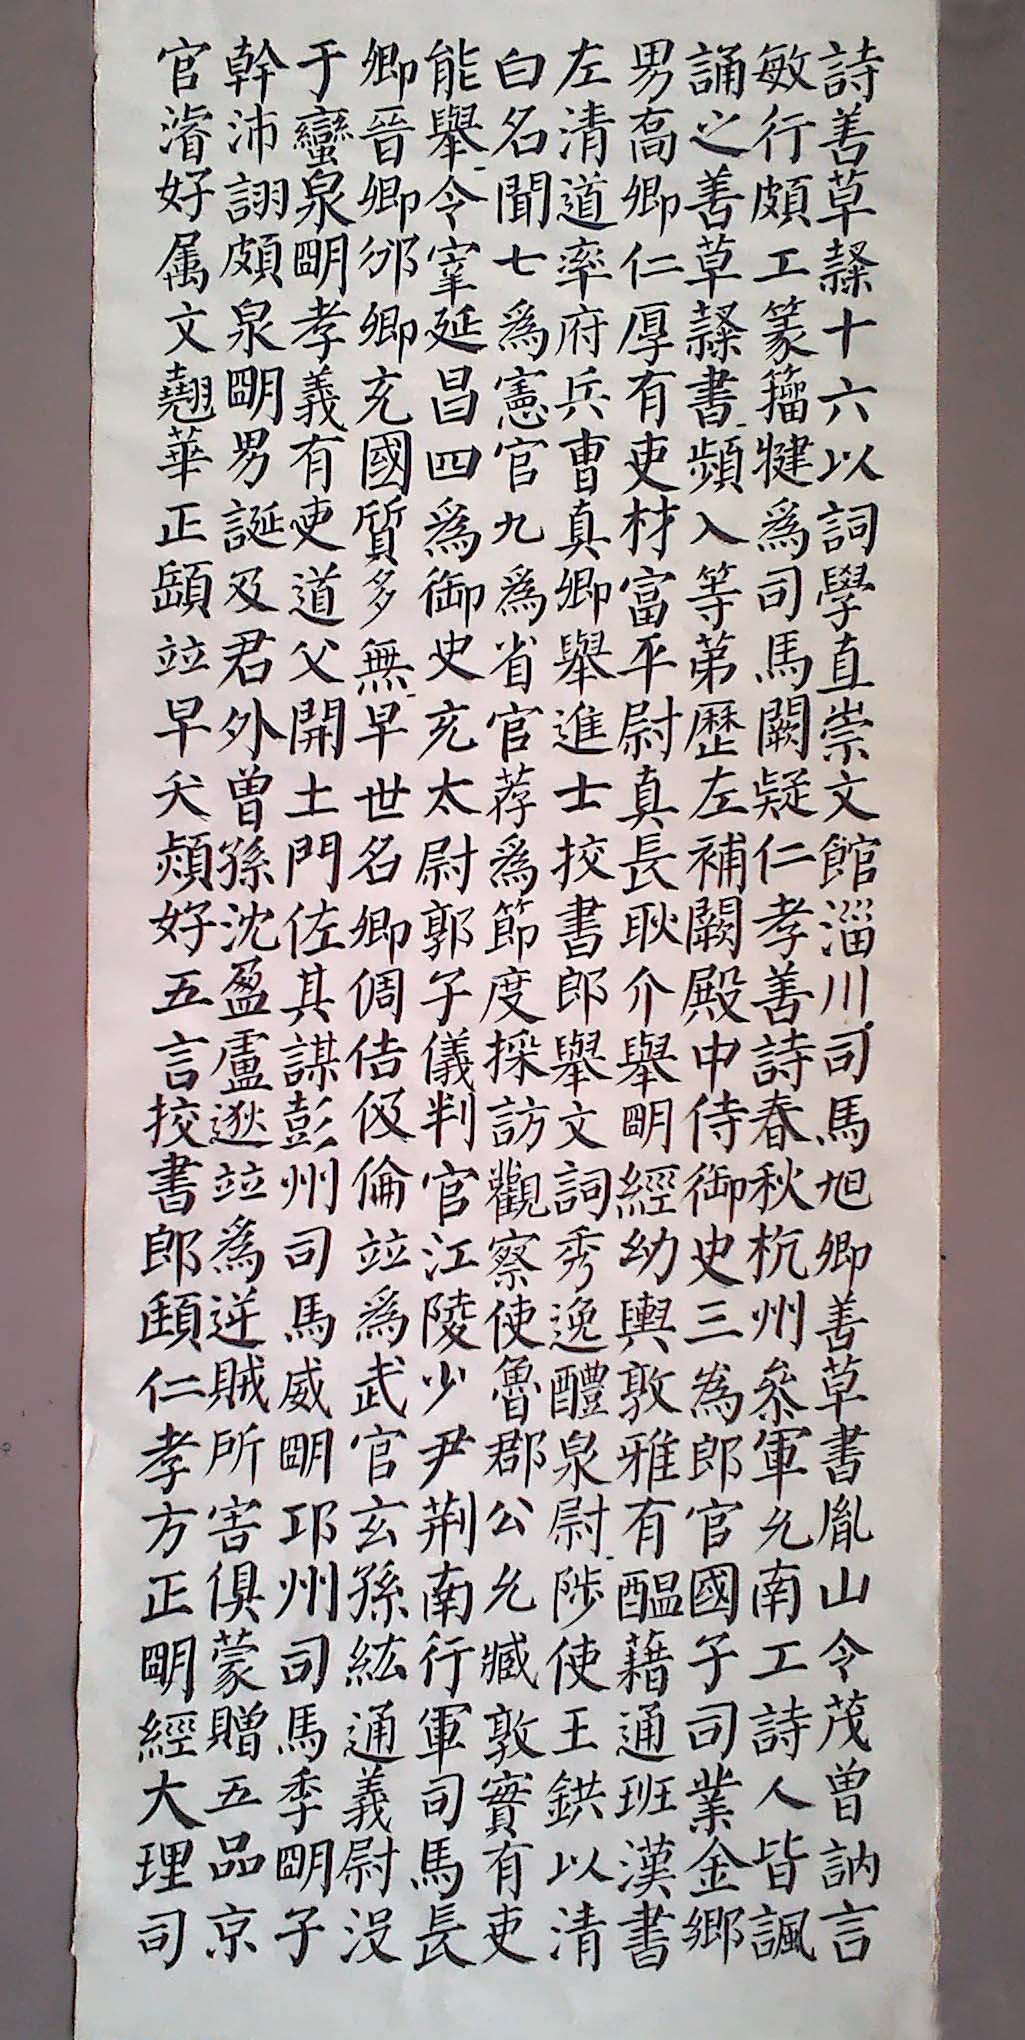 詩善草隸十六以詞學直崇文館淄川司馬旭卿善草書胤山令茂曾訥言
敏行頗工篆籀犍為司馬闕疑仁孝善詩春秋杭州參軍允南工詩人皆諷
誦之善草隸書頻入等第歷左補闕殿中侍御史三為郎官國子司業金鄉
男喬卿仁厚有吏材富平尉真長耿介舉明經幼輿敦雅有醞藉通班漢書
左清道率府兵曹真卿舉進士挍書郎舉文詞秀逸醴泉尉陟使王鉷以清
白名聞七為憲官九為省官荐為節度採訪觀察使魯郡公允臧敦實有吏
能舉令宰延昌四為御史充太尉郭子儀判官江陵少尹荊南行軍司馬長
卿晉卿邠卿充國質多無早世名卿倜佶伋倫竝為武官玄孫紘通義尉沒
于蠻泉明孝義有吏道父開土門佐其謀彭州司馬威明邛州司馬季明子
幹沛詡頗泉明男誕及君外曾孫沈盈盧逖竝為逆賊所害俱蒙贈五品京
官濬好属文翹華正頤竝早夭熲好五言挍書郎頲仁孝方正明經大理司